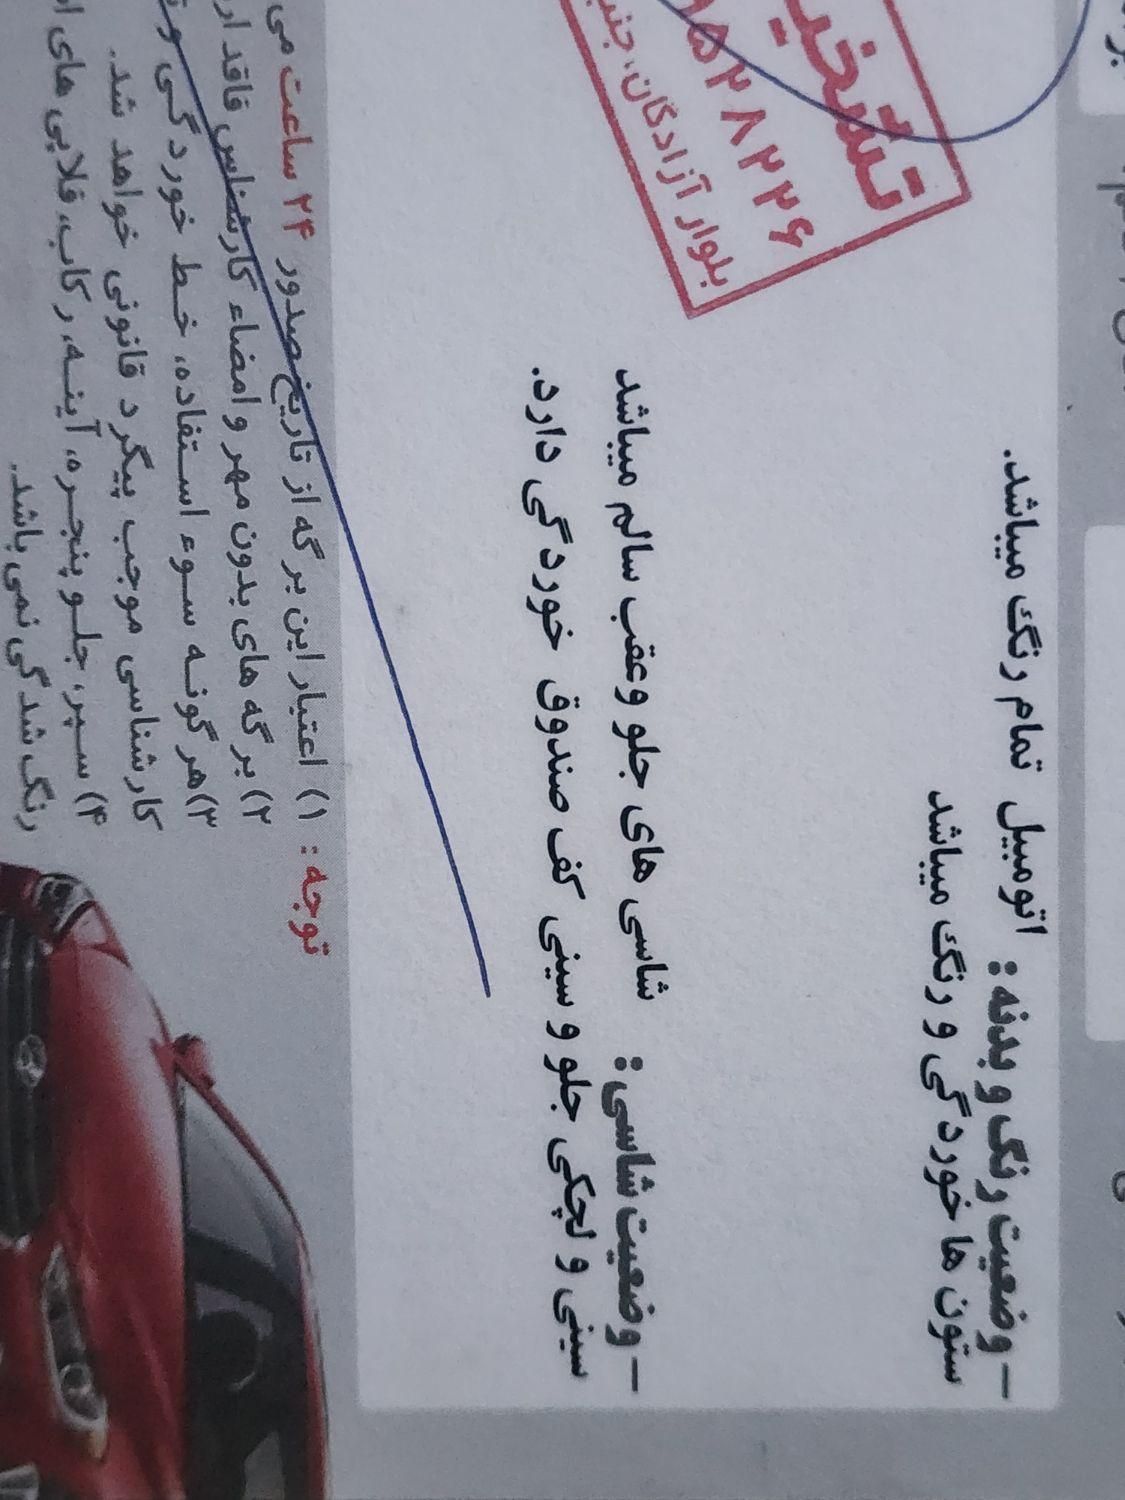 – وضعیت رنگ و بدنه : اتومبیل تمام رنگ میباشد.
ستون ها خوردگی و رنگ میباشد
– وضعیت شاسی : شاسی های جلو و عقب سالم میباشد
سینی و لچکی جلو و سینی کف صندوق خوردگی دارد.
تشخی
۵۲۸۲۲۶
بلوار آزادگان، جنب
توجه : ۱) اعتبار این برگه از تاریخ صدور ۲۴ ساعت می
۲) برگه های بدون مهر و امضاء کارشناس فاقد
۳) هر گونه سوء استفاده، خط خوردگی و
کارشناسی موجب پیگرد قانونی خواهد شد.
۴) سپر، جلو پنجره، آینه، رکاب، فلاپی های
رنگ شدگی نمی باشد.